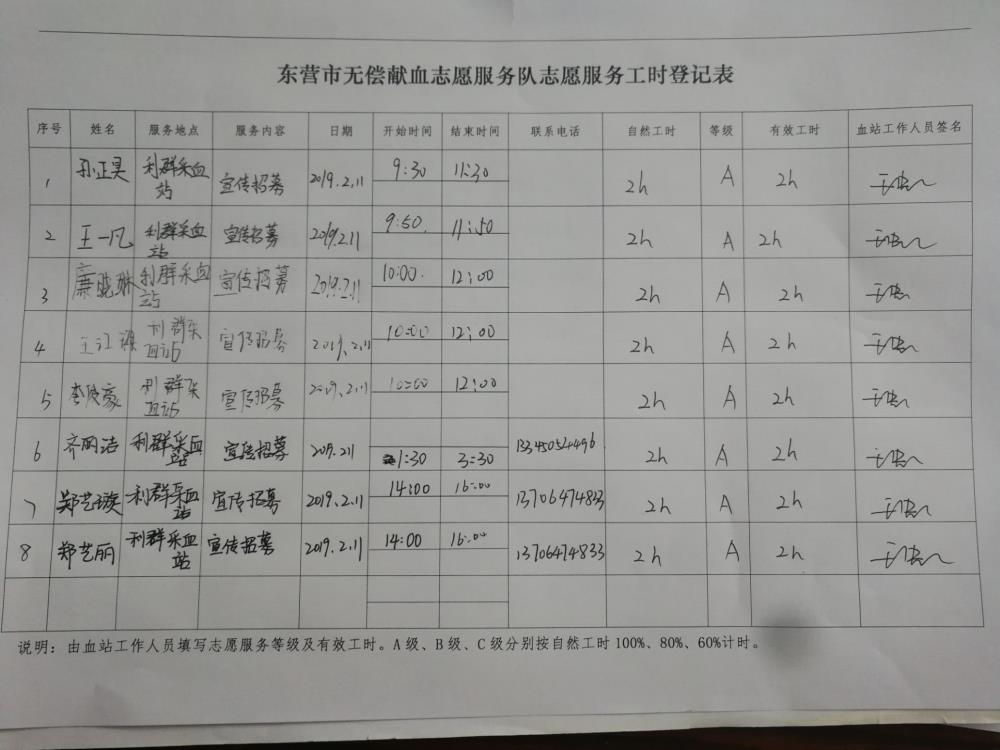 东营市无偿献血志愿服务队志愿服务工时登记表
序号 姓名 服务地点 服务内容 日期 开始时间 结束时间 联系电话 自然工时 等级 有效工时 血站工作人员签名
1 孙正昊 利群采血站 宣传招募 2019.2.11 9:30 11:30 2h A 2h
2 王一凡 利群采血站 宣传招募 2019.2.11 9:50 11:50 2h A 2h
3 廉晓琳 利群采血站 宣传招募 2019.2.11 10:00 12:00 2h A 2h
4 王江 利群采血站 宣传招募 2019.2.11 10:00 12:00 2h A 2h
5 李俊豪 利群采血站 宣传招募 2019.2.11 10:00 12:00 2h A 2h
6 齐明洁 利群采血站 宣传招募 2019.2.11 1:30 3:30 13345054496 2h A 2h
7 郑艺璇 利群采血站 宣传招募 2019.2.11 14:00 16:00 13706474833 2h A 2h
8 郑艺丽 利群采血站 宣传招募 2019.2.11 14:00 16:00 13706474833 2h A 2h
说明：由血站工作人员填写志愿服务等级及有效工时。A级、B级、C级分别按自然工时100%、80%、60%计时。